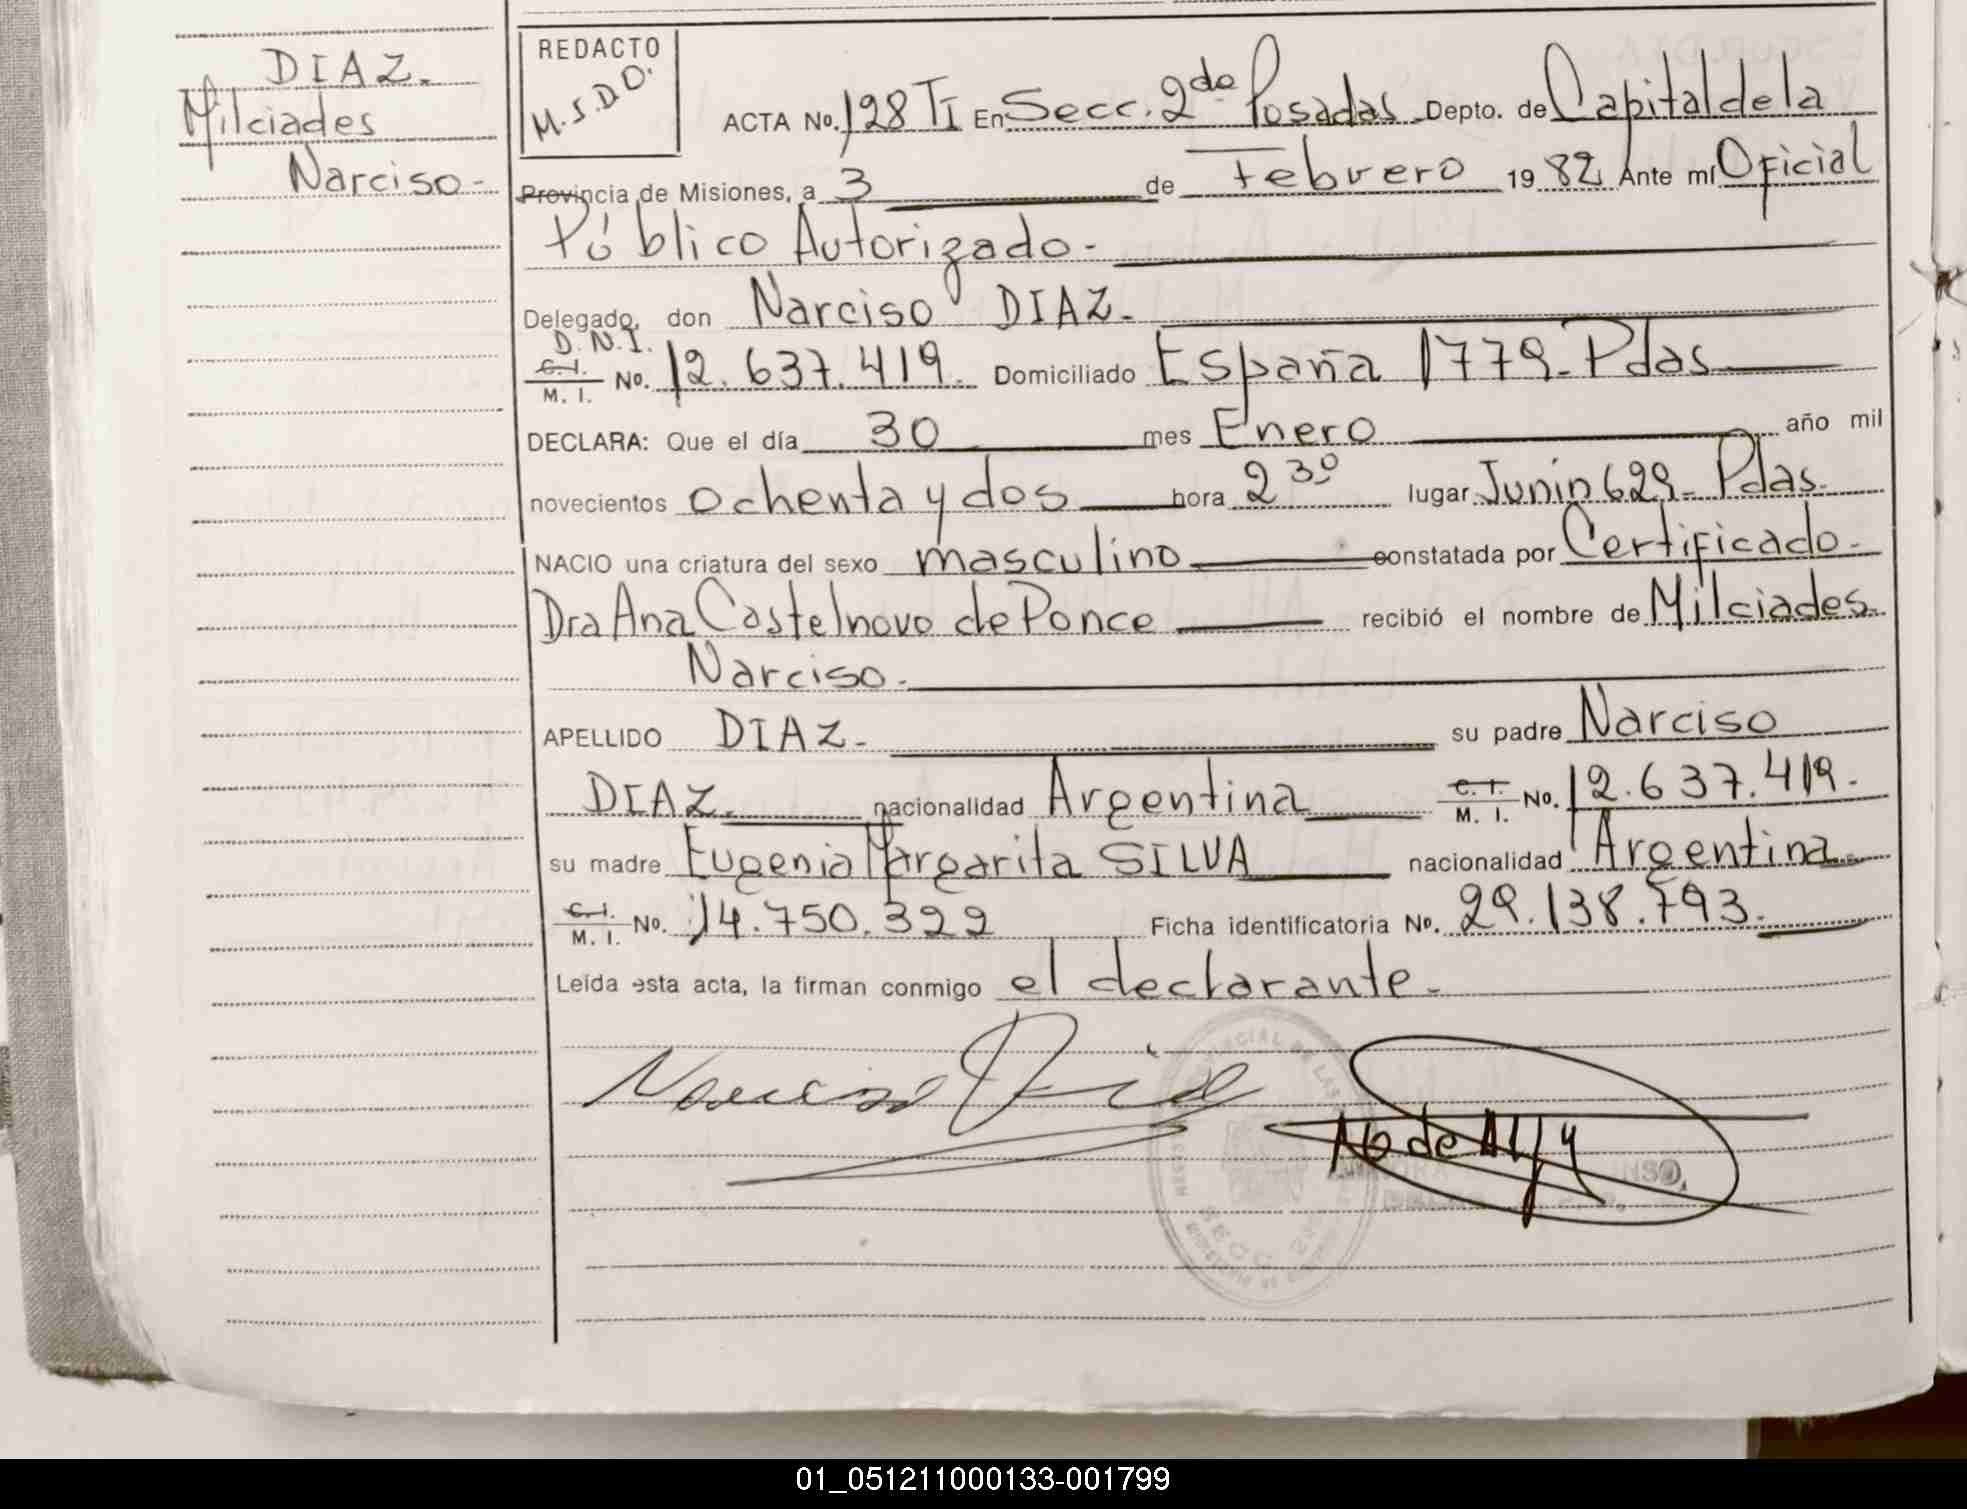 DIAZ.
Milciades
Narciso-
REDACTO
M.S.D.D.
ACTA No. 128 TI En Secc. 2da Posadas Depto. de Capital de la
Provincia de Misiones, a 3 de Febrero 19 82 Ante mí Oficial
Público Autorizado-
Delegado, don Narciso DIAZ.-
D.N.I.
C.I.
M. I. No. 12.637.419. Domiciliado España 1779-Pdas
DECLARA: Que el día 30 mes Enero año mil
novecientos ochenta y dos hora 2 30 lugar Junin 629- Pdas.
NACIO una criatura del sexo masculino constatada por Certificado-
Dra Ana Castelnovo de Ponce recibió el nombre de Milciades
Narciso.-
APELLIDO DIAZ.- su padre Narciso
DIAZ. nacionalidad Argentina C. I. M. I. No. 12.637.419.
su madre Eugenia Margarita SILVA nacionalidad Argentina
C. I. M. I. No. 14.750.322 Ficha identificatoria No. 29.138.793.
Leída esta acta, la firman conmigo el declarante.-
Narciso Diaz
SECC. 2
01_051211000133-001799